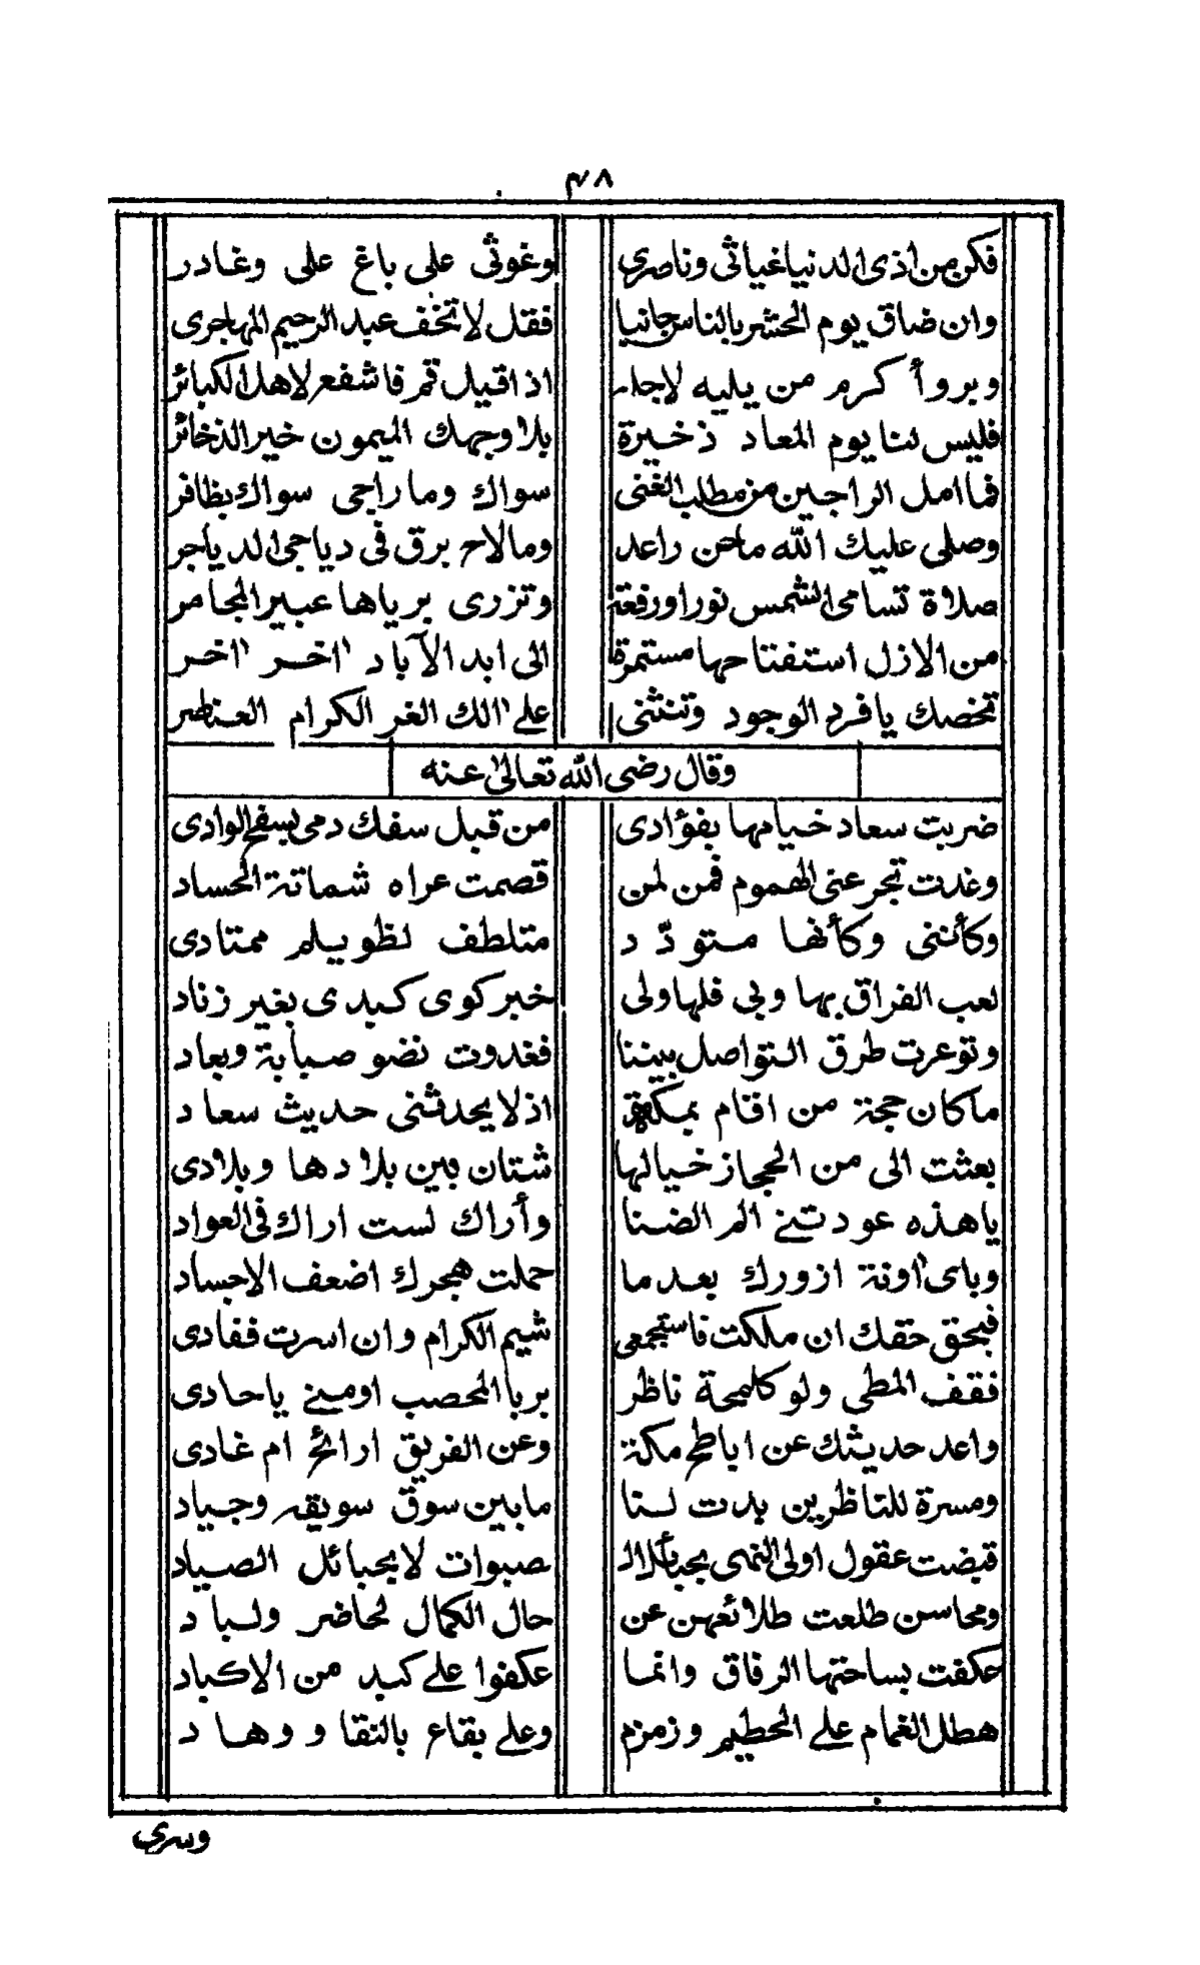 ٤٨
فكن من اذى الدنيا غياثى وناصرى وغوثى على باغ على وغادر
وان ضاق يوم الحشر بالناس جانبا فقل لا تخف عبد الرحيم المهاجرى
وبر وأكرم من يليه لاجله اذا قيل قم فاشفع لاهل الكبائر
فليس لنا يوم المعاد ذخيرة بلا وجهك الميمون خير الذخائر
فما امل الراجين من مطلب الغنى سواك وما راجى سواك بظافر
وصلى عليك الله ما حن راعد وما لاح برق فى دياجى الدياجر
صلاة تسامى الشمس نورا ورفعة وتزرى برياها عبير المجامر
من الازل استفتاحها مستمرة الى ابد الآباد اخر اخر
تخصك يا فرد الوجود وتنثنى على الك الغر الكرام العناصر
وقال رضى الله تعالى عنه
ضربت سعاد خيامها بفؤادى من قبل سفك دمى بسفح الوادى
وغدت تجرعنى الهموم فمن لمن قصمت عراه شماتة الحساد
وكأننى وكأنها متودّد متلطف لظويلم متمادى
لعب الفراق بها وبى فلها ولى خبر كوى كبدى بغير زناد
وتوعرت طرق التواصل بيننا فغدوت نضو صبابة وبعاد
ما كان حجة من اقام بمكة اذ لا يحدثنى حديث سعاد
بعثت الى من الحجاز خيالها شتان بين بلادها وبلادى
يا هذه عودتنى الم الضنا وأراك لست اراك فى العواد
وباى اونة ازورك بعد ما حملت هجرك اضعف الاجساد
فبحق حقك ان ملكت فاسمجى شيم الكرام وان اسرت ففادى
فقف المطى ولو كلمحة ناظر بربا المحصب او منى يا حادى
واعد حديثك عن اباطح مكة وعن الفريق ارائح ام غادى
ومسرة للناظرين بدت لنا ما بين سوق سويقه وجياد
قبضت عقول اولى النهى بحبائل الـ صبوات لا بحبائل الصياد
ومحاسن طلعت طلائعهن عن حال الكمال لحاضر ولباد
عكفت بساحتها الرفاق وانما عكفوا على كبد من الاكباد
هطل الغمام على الحطيم وزمزم وعلى بقاع بالنقا ووهاد
وسرى